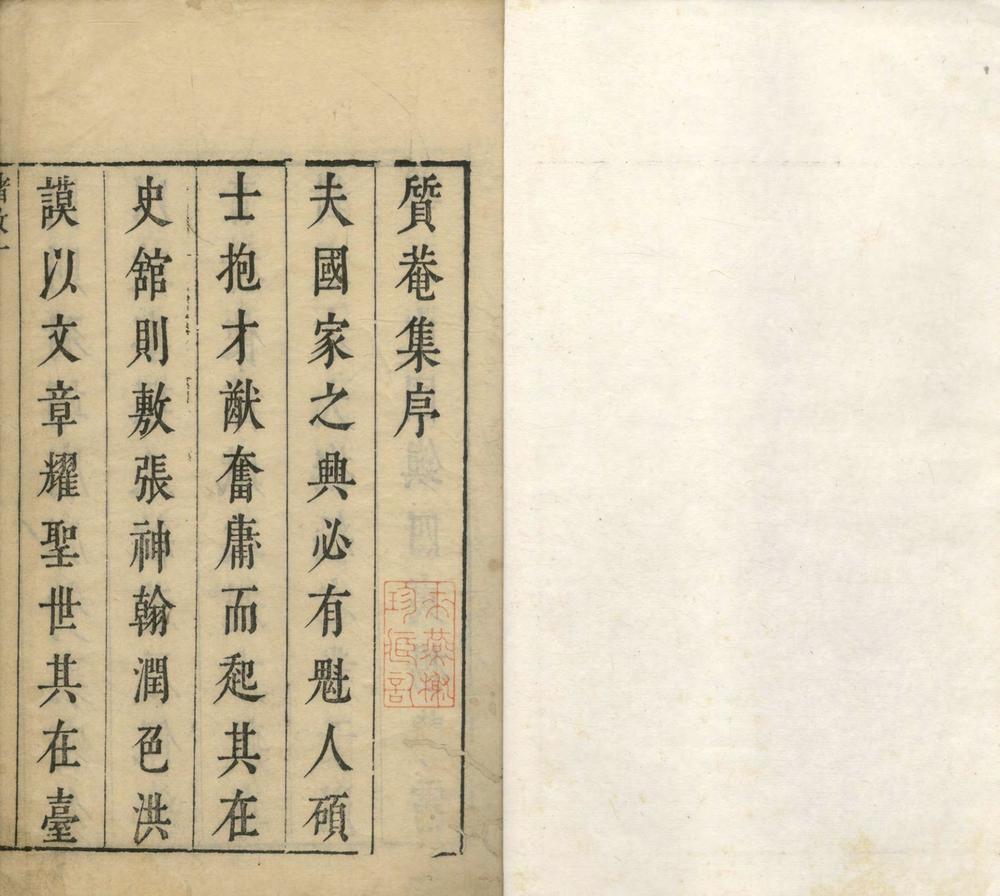 質菴集序
夫國家之興必有魁人碩
士抱才猷奮庸而起其在
史舘則敷張神翰潤色洪
謨以文章耀聖世其在臺